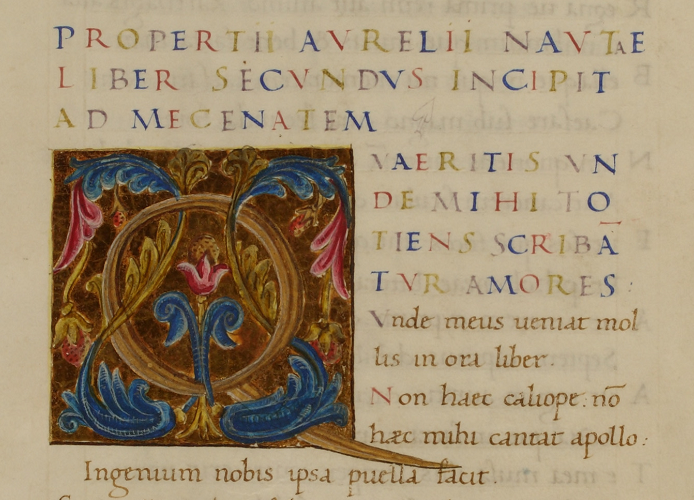 PROPERTII AVRELII NAVTAE
LIBER SECVNDVS INCIPIT
AD MECENATEM
QVAERITIS VN
DE MIHI TO
TIENS SCRIBĀ
TVR AMORES:
Vnde meus ueniat mol
lis in ora liber.
Non haec caliope: nō
hæc mihi cantat apollo:
Ingenium nobis ipsa puella facit.